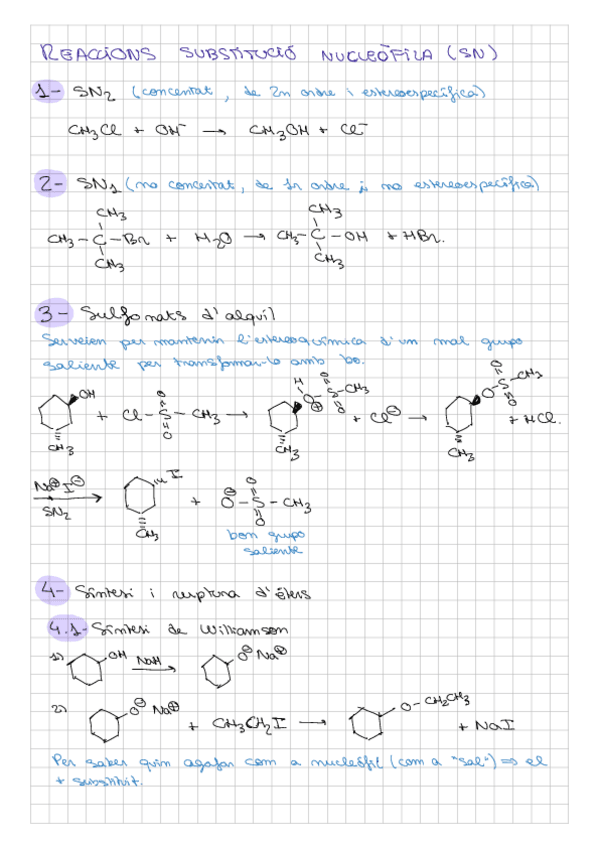 REACCIONS SUBSTITUCIÓ NUCLEÒFILA (SN)
1- SN2 (concertat, de 2n ordre i estereoespecífica)
CH3Cl + OH⁻ → CH3OH + Cl⁻
2- SN1 (no concertat, de 1r ordre i no estereoespecífica)
CH3 CH3
CH3-C-Br + H2O → CH3-C-OH + HBr.
CH3 CH3
3- Sulfonats d'alquil
Serveixen per mantenir l'estereoquímica d'un mal grupo
saliente per transformar-lo amb bo.
OH + Cl-S-CH3 → + Cl⊖ → + HCl.
O O H O⊕ S CH3 O S CH3
CH3 CH3 CH3
Na⊕I⊖ I + ⊖O-S-CH3
SN2 O O
CH3 bon grupo
saliente
4- Síntesi i ruptura d'èters
4.1- Síntesi de Williamson
1) OH NaH → O⊖ Na⊕
2) O⊖ Na⊕ + CH3CH2I → O-CH2CH3 + NaI
Per saber quin agafar com a nucleòfil (com a "sal") ⇒ el
+ substituït.